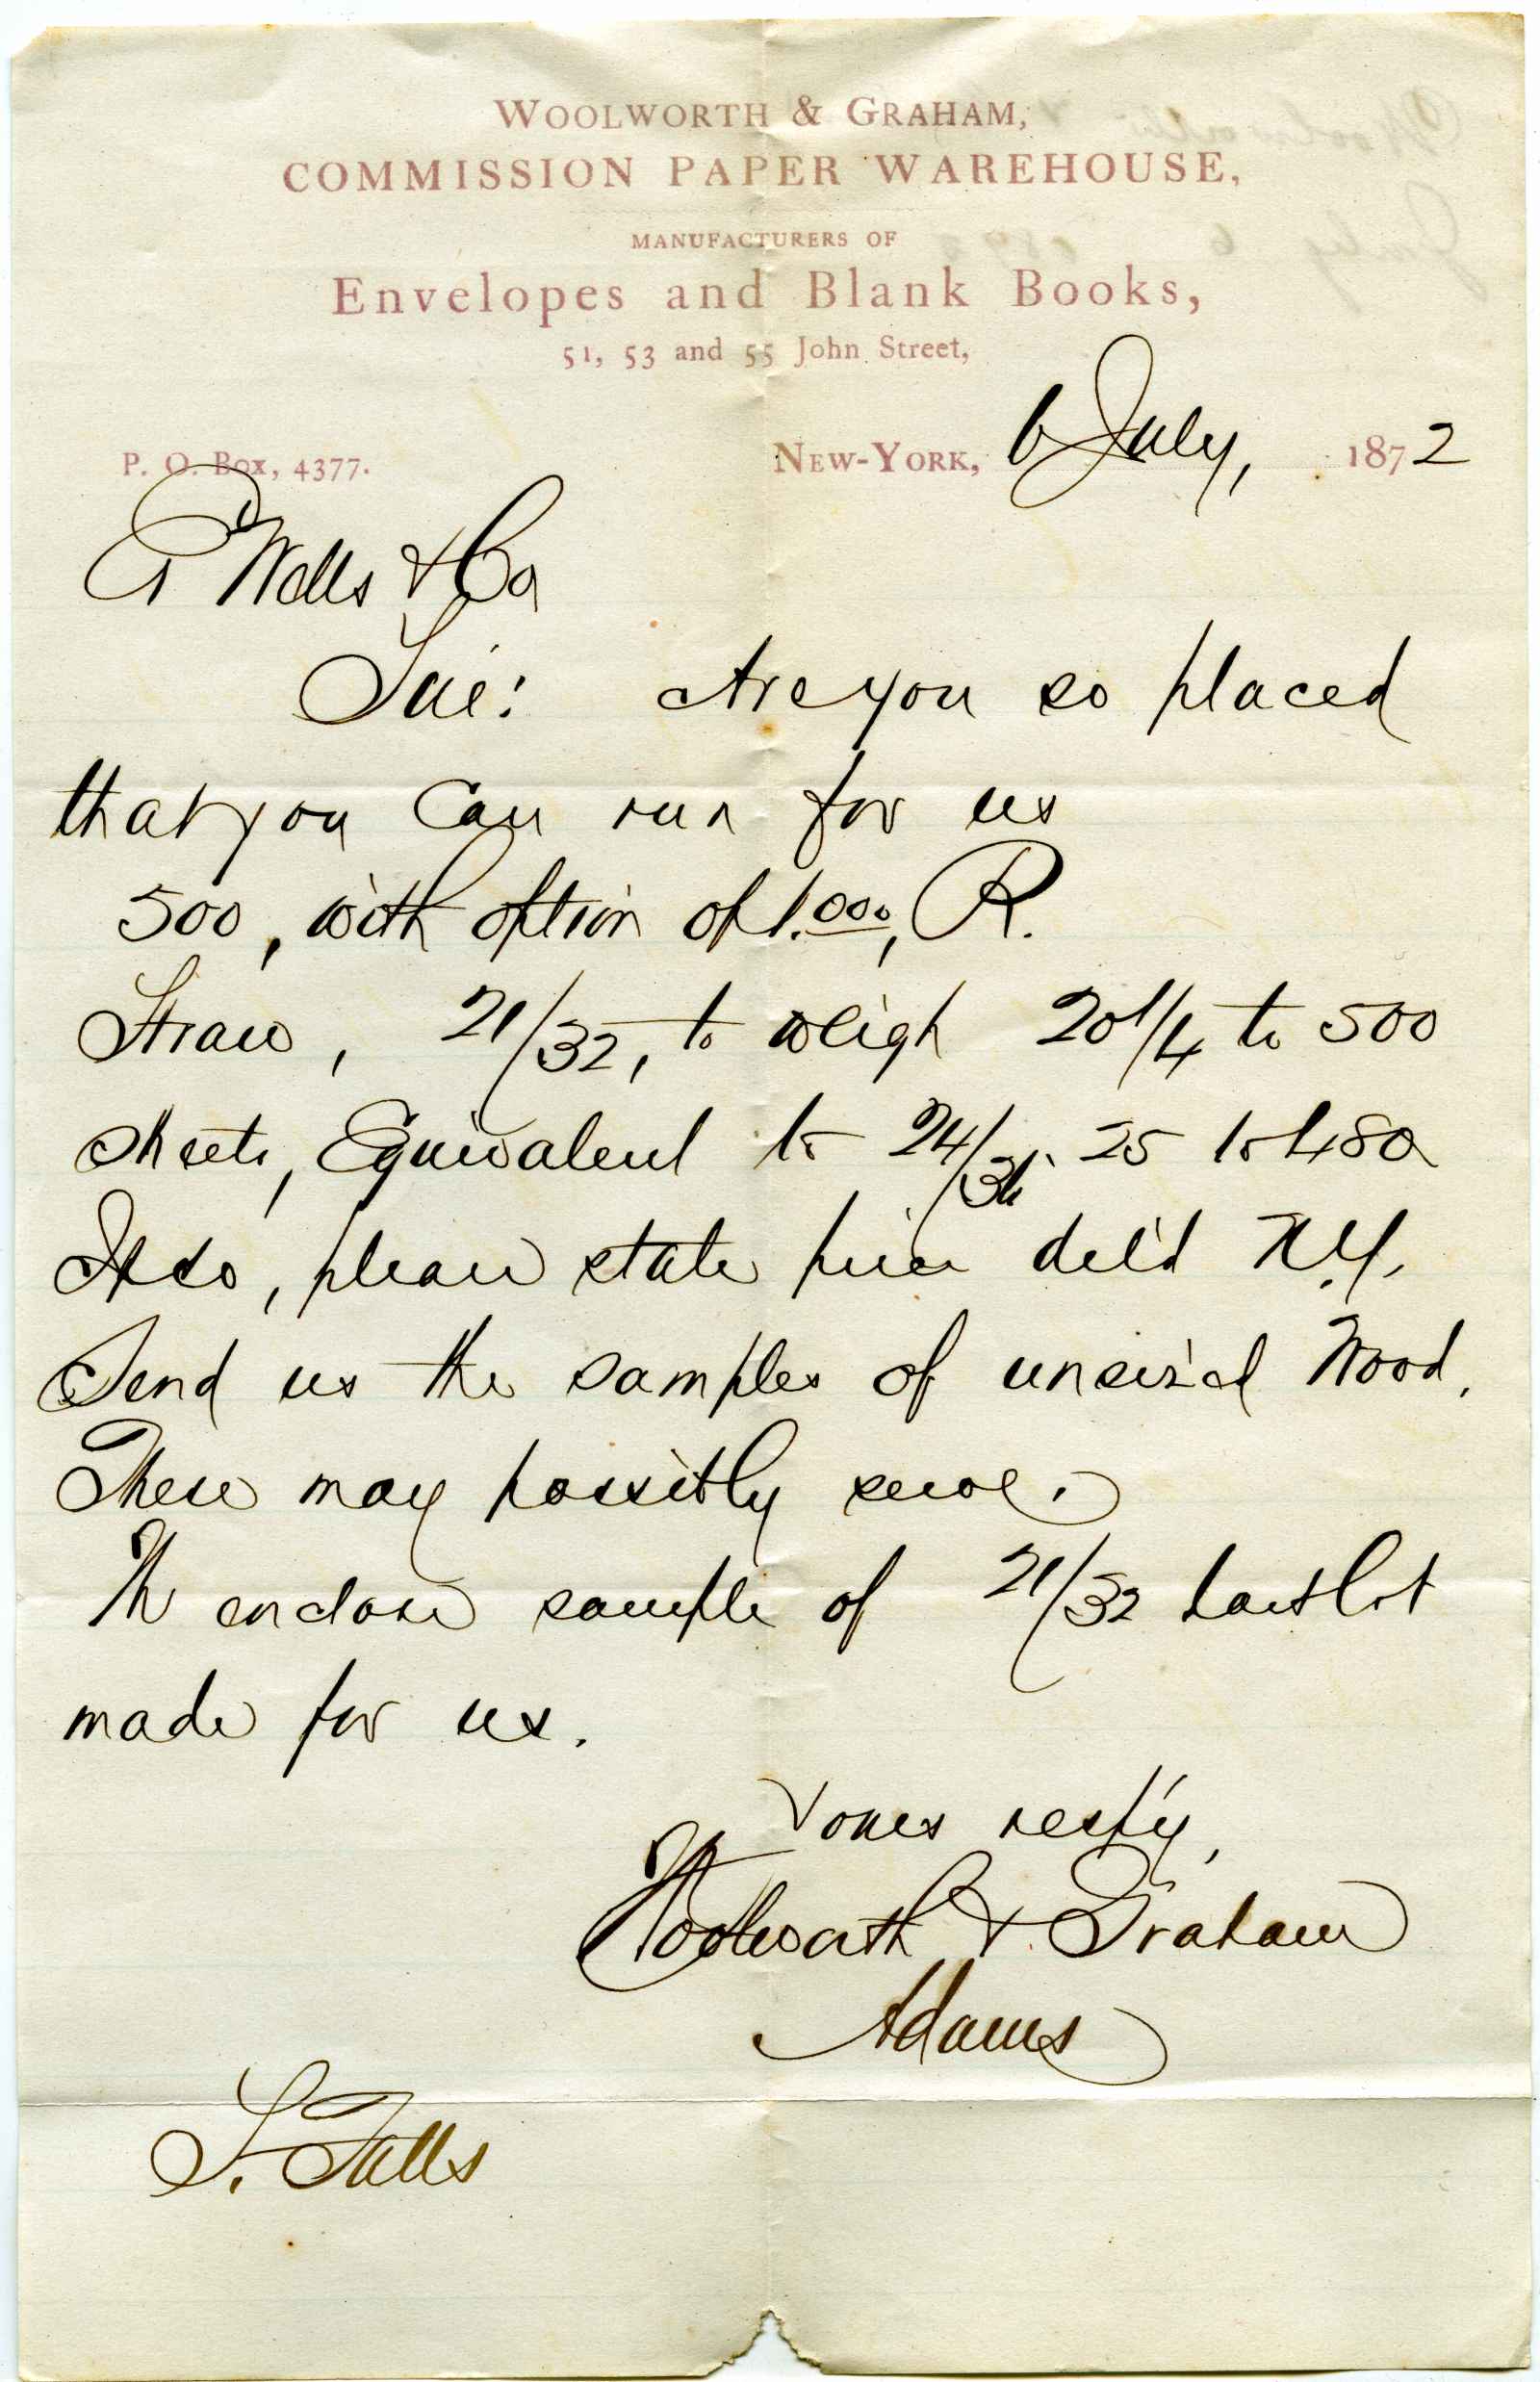 WOOLWORTH & GRAHAM,
COMMISSION PAPER WAREHOUSE,
MANUFACTURERS OF
Envelopes and Blank Books,
51, 53 and 55 John Street,
P. O. Box, 4377. NEW-YORK, 6 July, 1872
Wells & Co
Sir: Are you so placed
that you can run for us
500, with option of 1.000, R.
Straw, 21/32, to weigh 20 1/4 to 500
sheets, Equivalent to 24/36 25 to 480
If so, please state price del'd N.Y.
Send us the samples of unsiz'd Wood.
These may possibly serve.
We enclose sample of 21/32 last lot
made for us.
Yours resp'y,
Woolworth & Graham
Adams
S. Falls